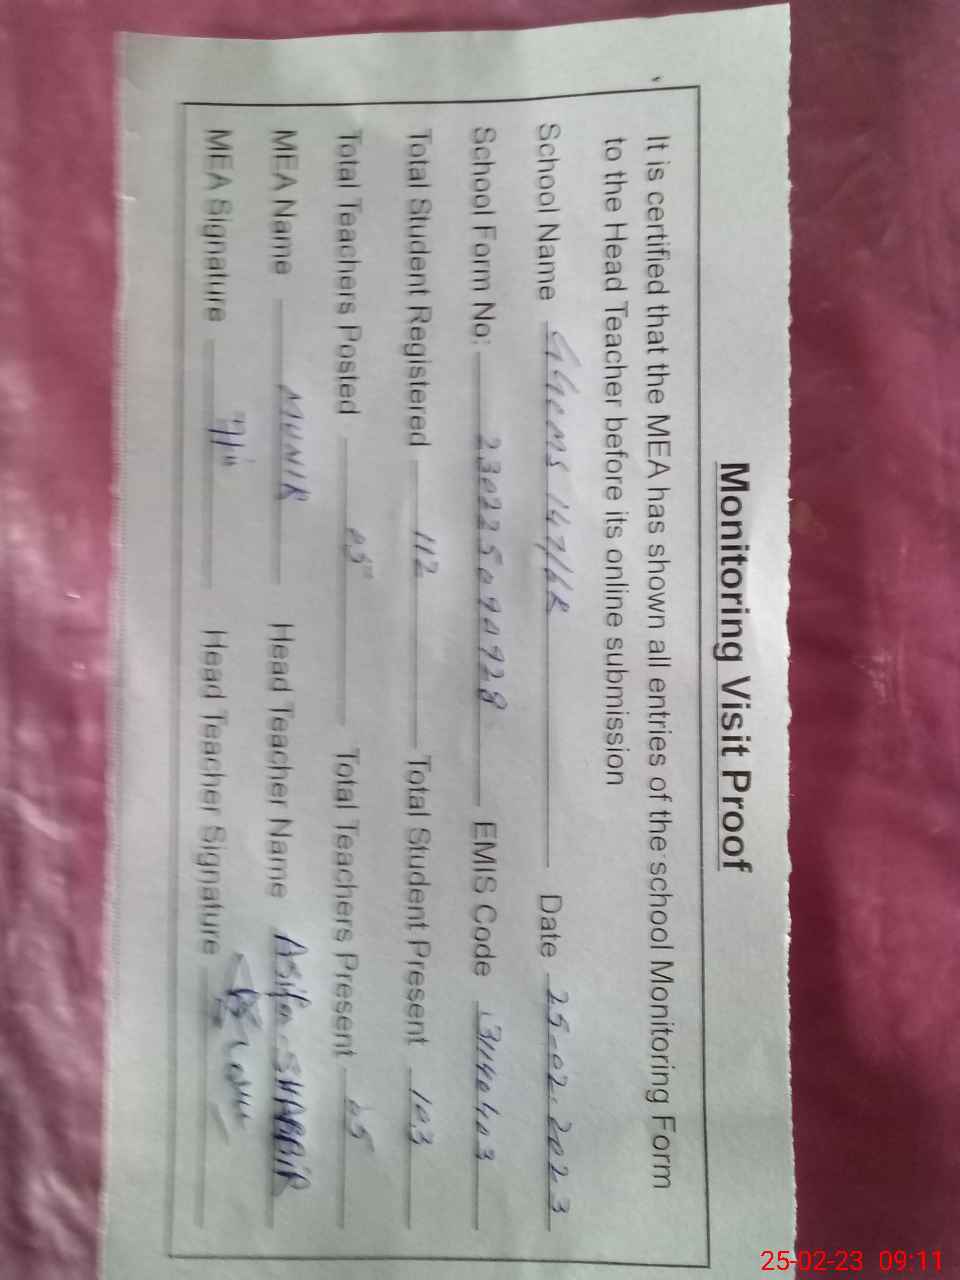 Monitoring Visit Proof
It is certified that the MEA has shown all entries of the school Monitoring Form
to the Head Teacher before its online submission
School Name 147/6R Date 25-02-2023
School Form No: EMIS Code 31140403
Total Student Registered 112 Total Student Present 103
Total Teachers Posted 05 Total Teachers Present 05
MEA Name MUNIR Head Teacher Name Asifa SHABBIR
MEA Signature Head Teacher Signature
25-02-23 09:11